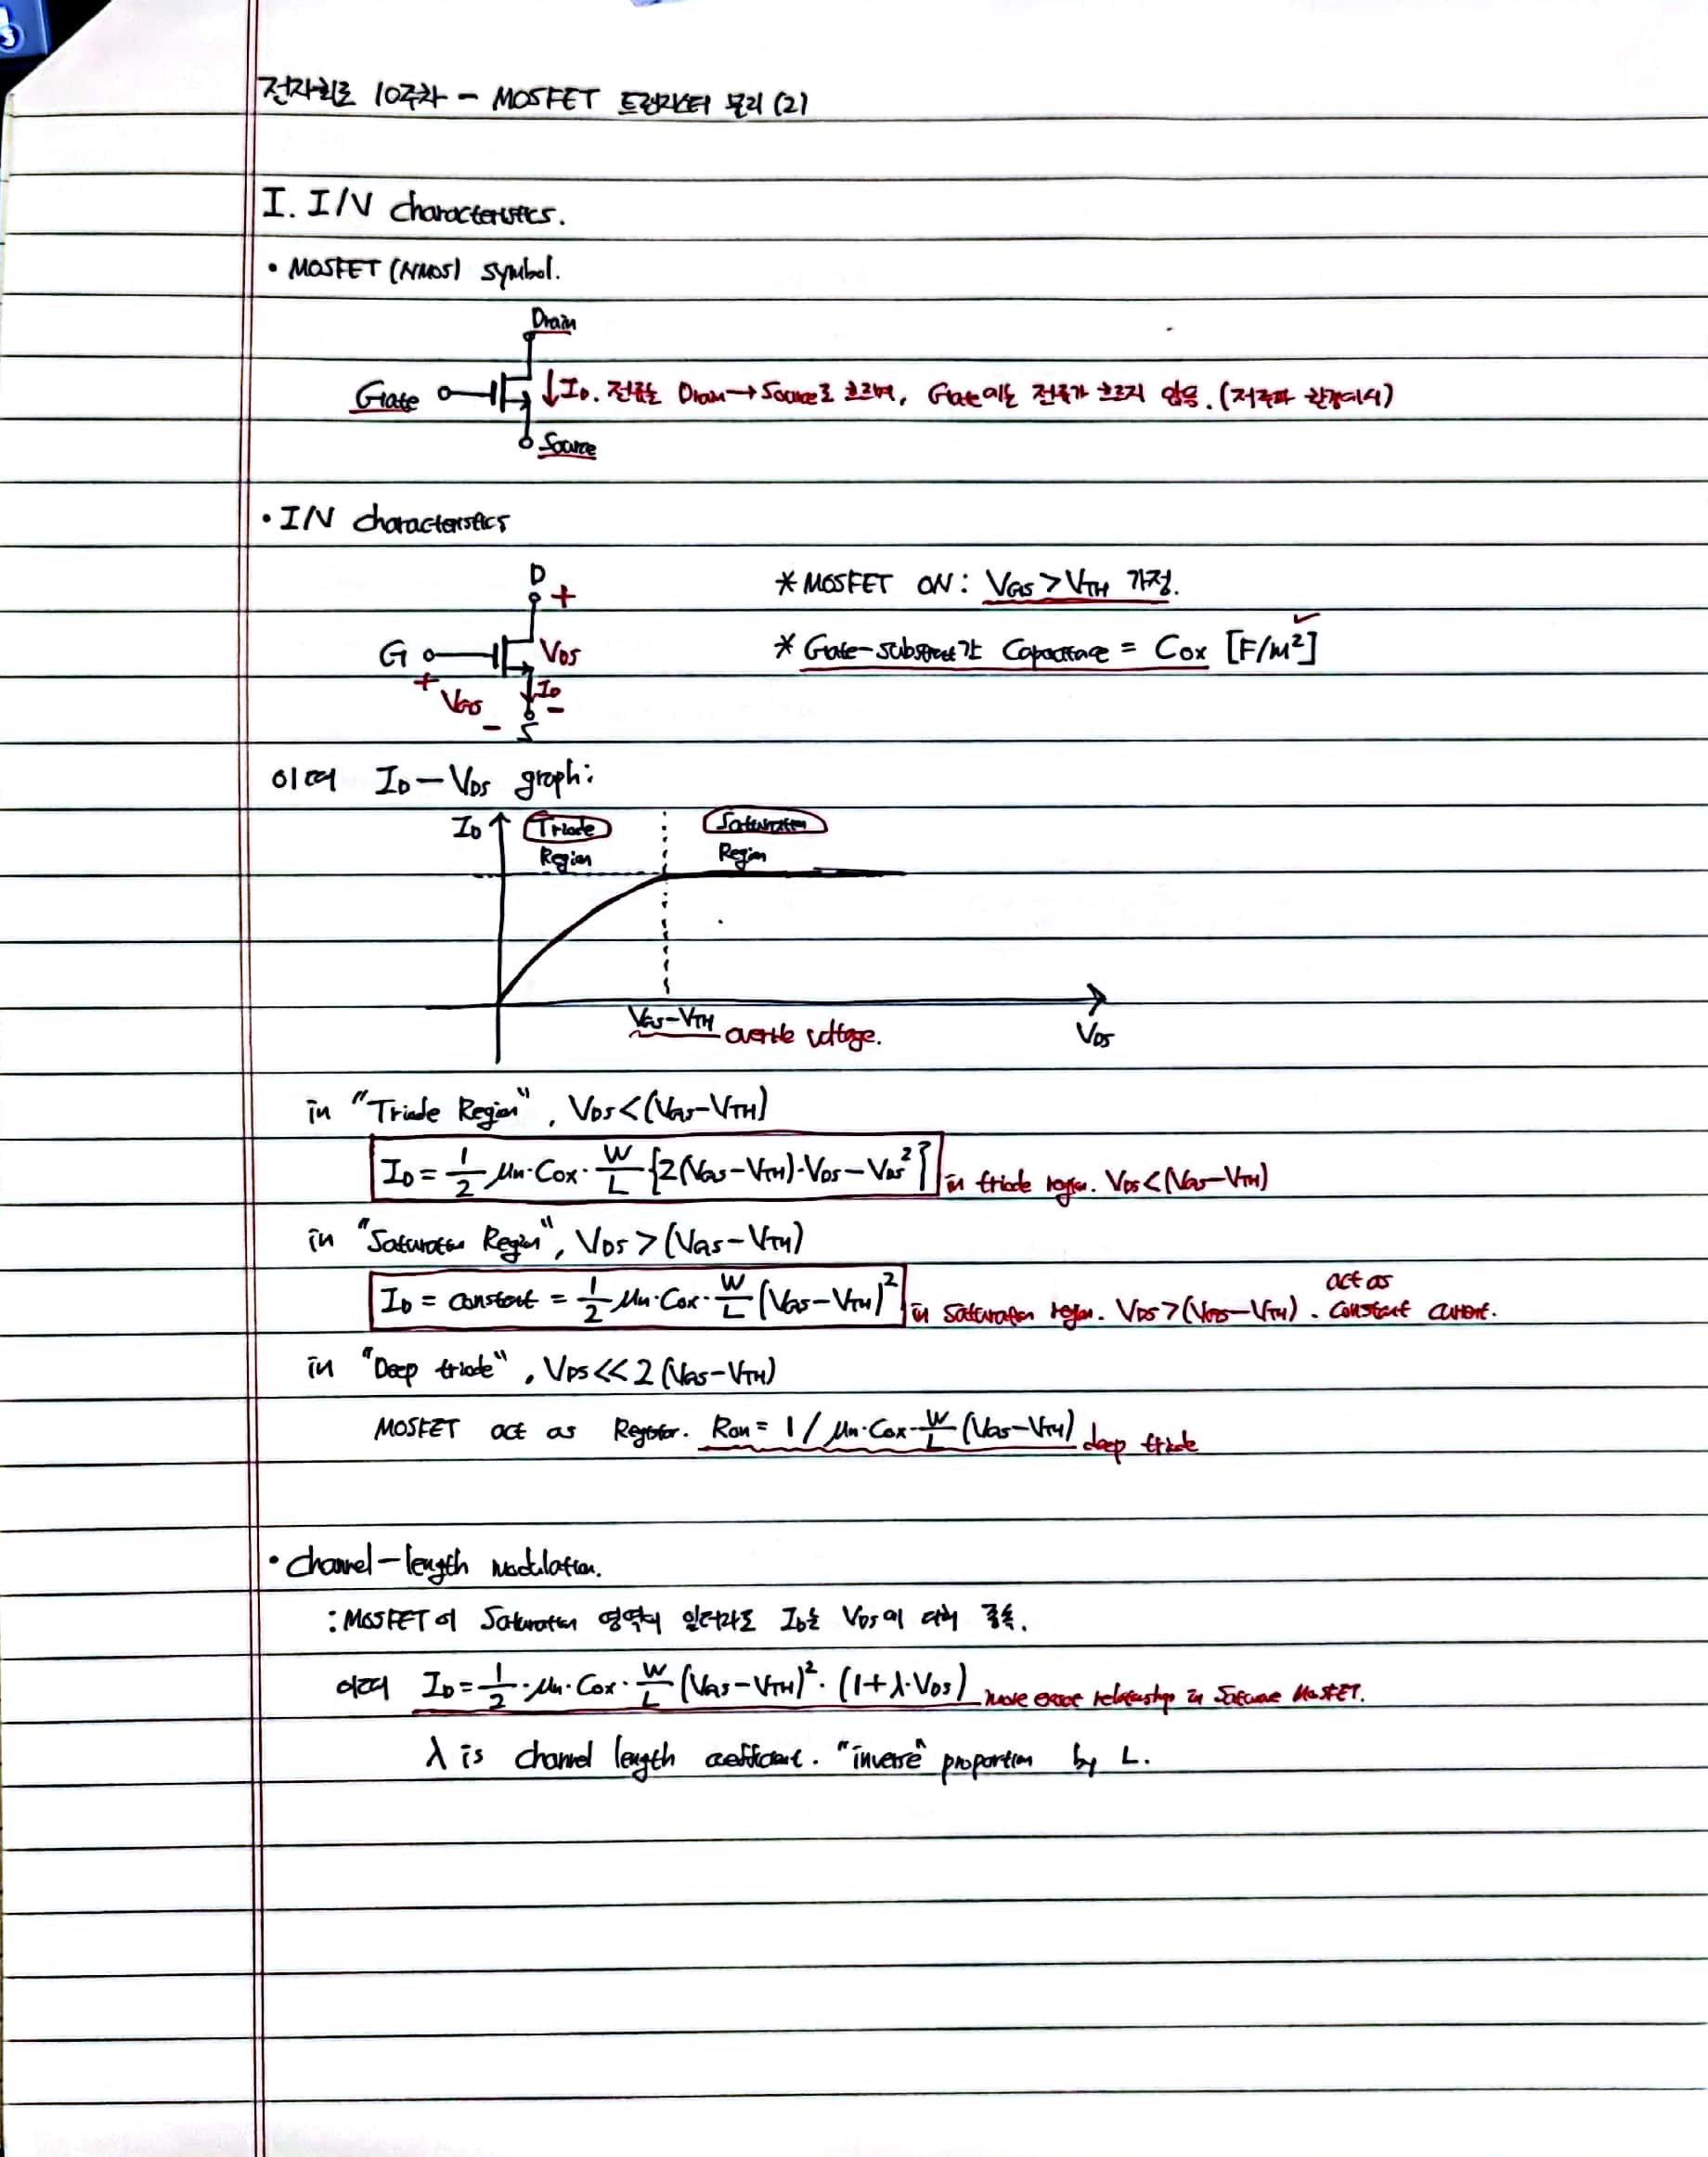 전자회로 10주차 - MOSFET 트랜지스터 물리 (2)
I. I/V characteristics.
• MOSFET (NMOS) symbol.
Drain
Gate
↓ID. 전류는 Drain→Source로 흐르며, Gate에는 전류가 흐르지 않음. (저주파 환경에서)
Source
• I/V characteristics
D
+
* MOSFET ON : VGS > VTH 가정.
G
VDS
* Gate-substrate간 Capacitance = Cox [F/m²]
+
VGS
ID
-
-
S
이때 ID - VDS graph:
ID
Triode
Region
Saturation
Region
VGS-VTH
voltage.
VDS
in "Triode Region", VDS < (VGS-VTH)
ID = 1/2 μn·Cox· W/L {2(VGS-VTH)·VDS - VDS²} in triode region. VDS < (VGS-VTH)
in "Saturation Region", VDS > (VGS-VTH)
ID = constant = 1/2 μn·Cox· W/L (VGS-VTH)² in saturation region. VDS > (VGS-VTH). act as constant current.
in "Deep triode", VDS << 2(VGS-VTH)
MOSFET act as Ron = 1 / μn·Cox· W/L (VGS-VTH) deep triode
• channel-length modulation.
: MOSFET이 Saturation 영역에 있더라도 ID는 VDS에 대해 종속.
이때 ID = 1/2 ·μn·Cox· W/L (VGS-VTH)² · (1+λ·VDS) more exact relationship in MOSFET.
λ is channel length coefficient. "inverse" proportion by L.